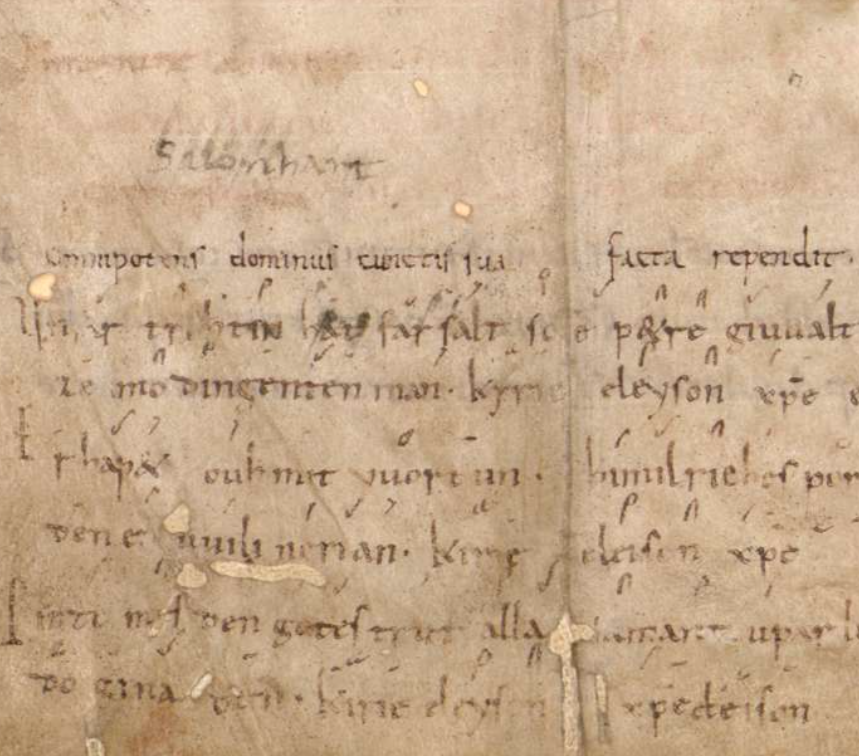 omnipotens dominus cunctis sua facta rependit.
Unsar trohtin hat farsalt sc̄e petre giuualt
ze imo dingenten man. kyrie eleyson xp̄e
Er hapet ouh mit vuortun. himilriches por
den er uuili nerian. kirie eleison xp̄e
Pittemes den gotes trut alla samant upar
do ginaden. kirie eleyson xp̄e eleison